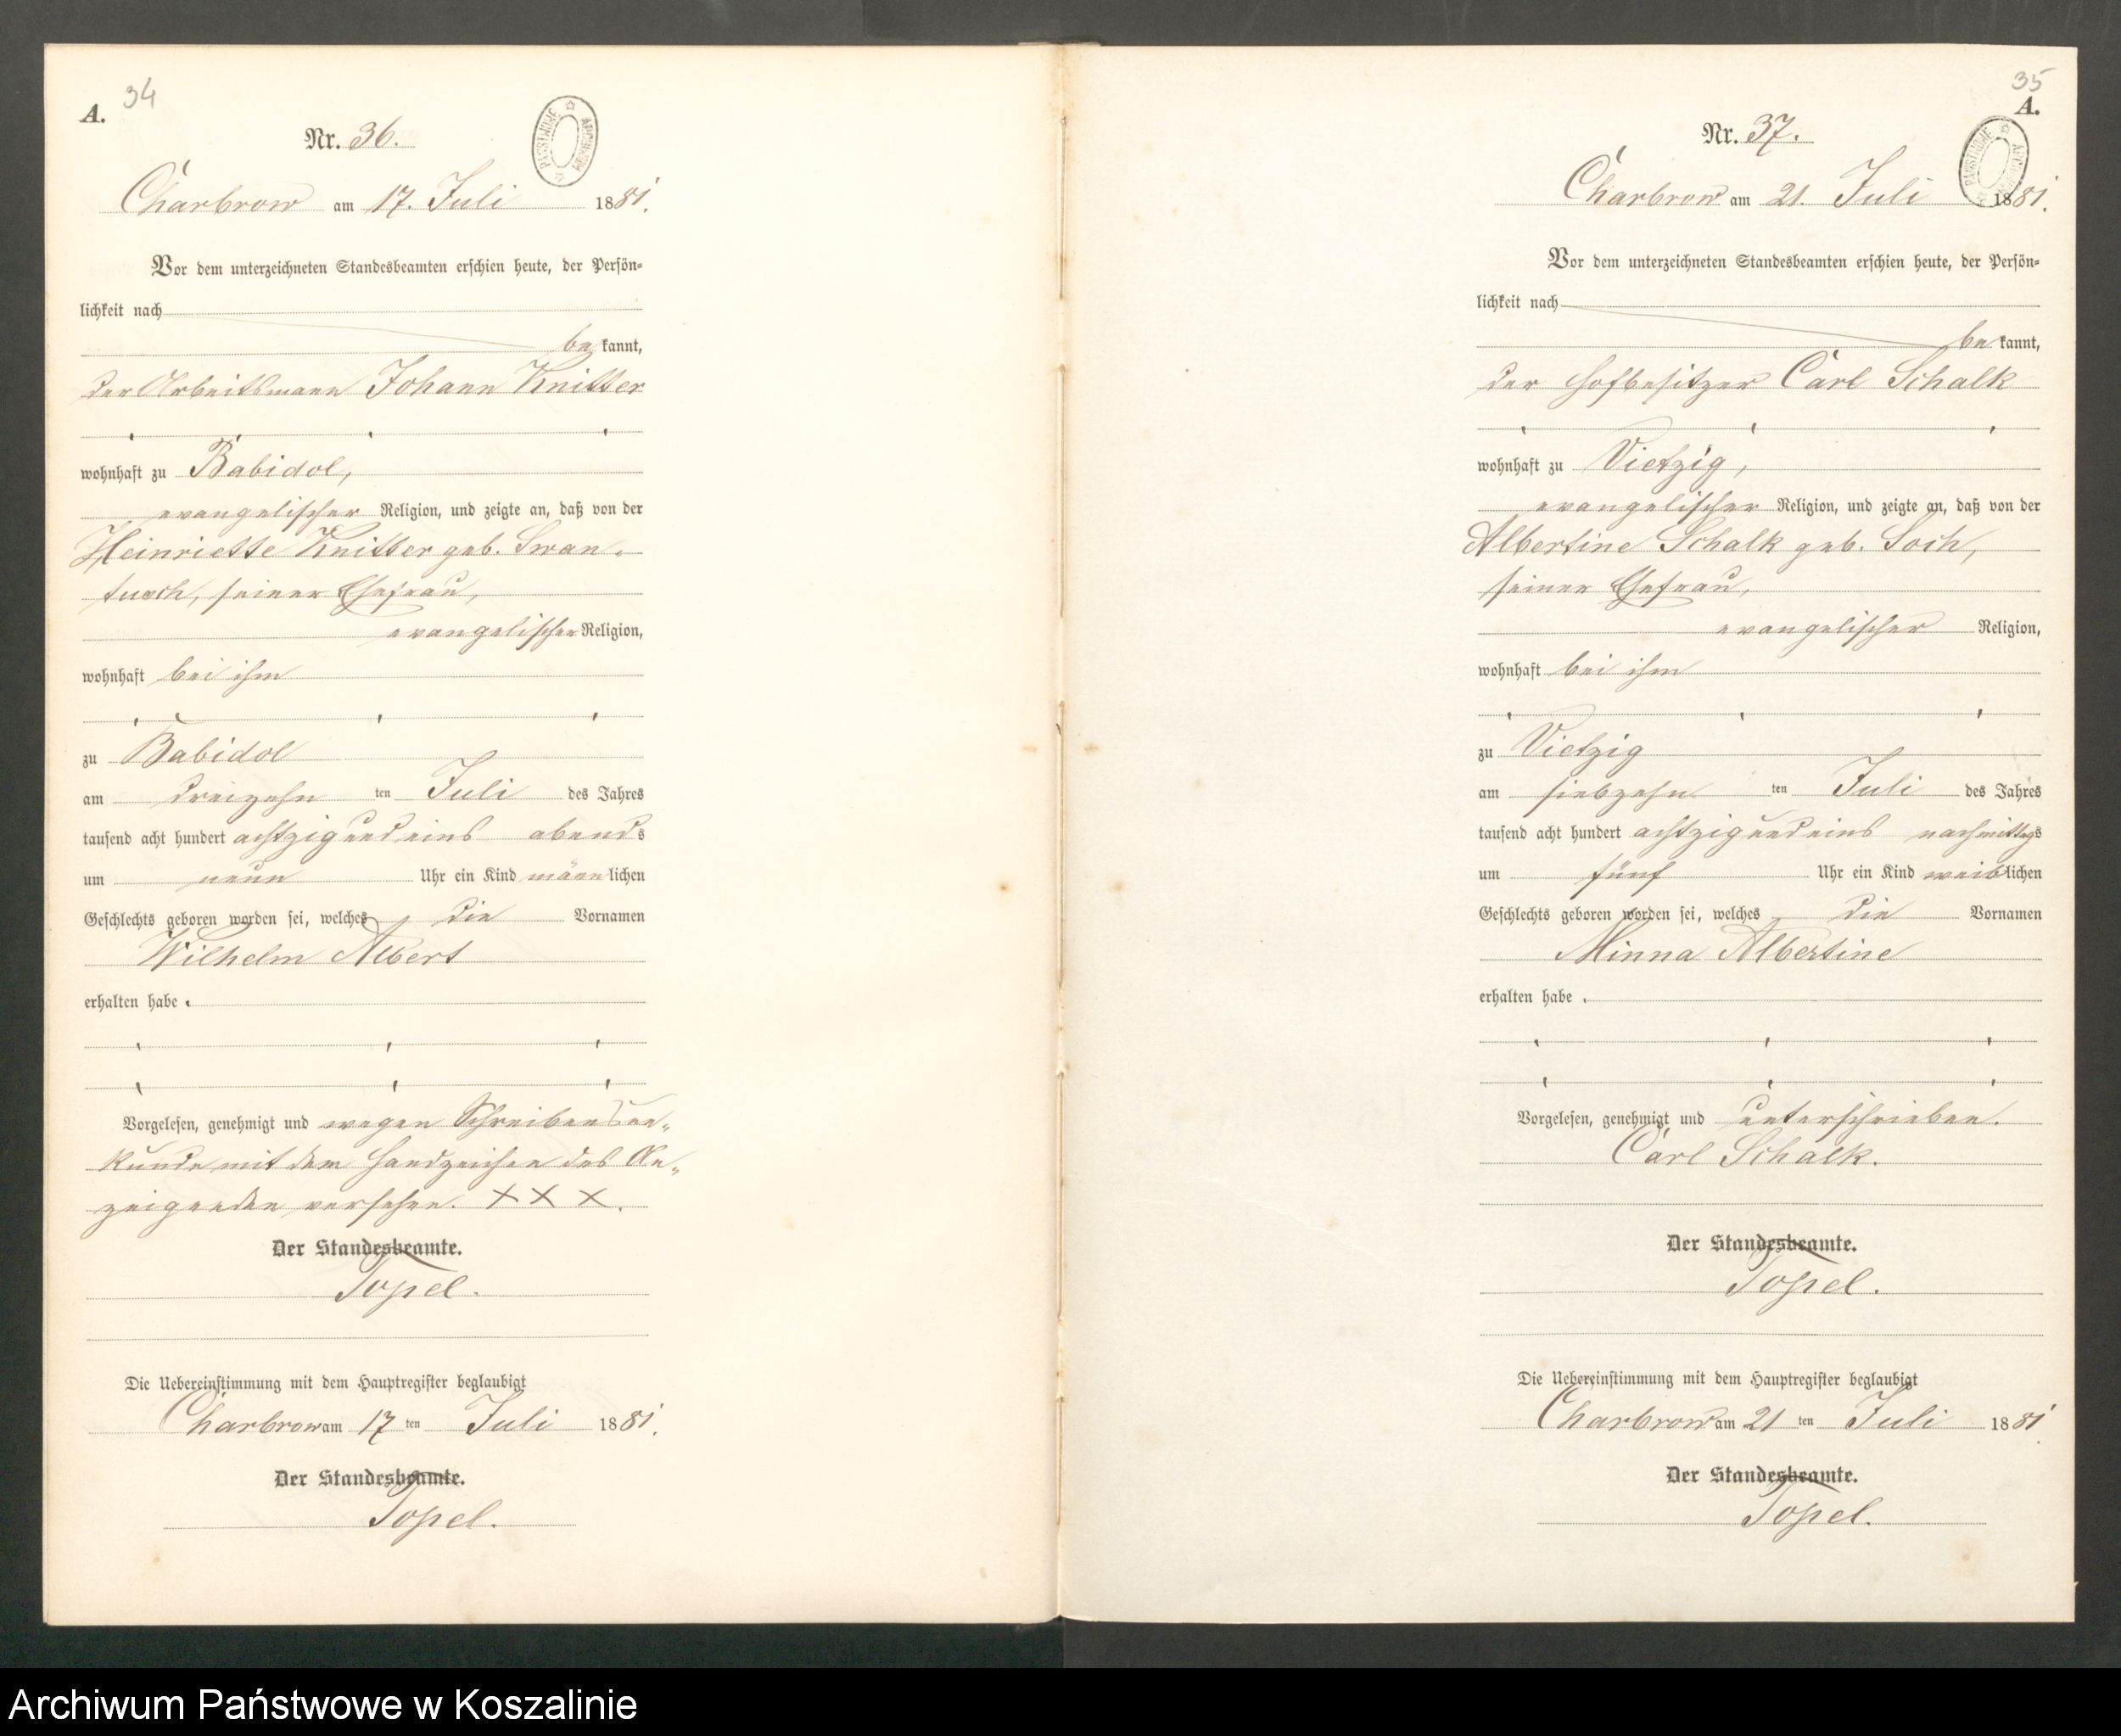 34
A.
Nr. 36.
PAŃSTWOWE ARCHIWUM
Charbrow am 17. Juli 1881.
Vor dem unterzeichneten Standesbeamten erschien heute, der Persön-
lichkeit nach
be kannt,
der Arbeitsmann Johann Knitter
wohnhaft zu Babidol,
evangelischer Religion, und zeigte an, daß von der
Heinriette Knitter geb. Swan-
tusch, seiner Ehefrau,
evangelischer Religion,
wohnhaft bei ihm
zu Babidol
am dreizehn ten Juli des Jahres
tausend acht hundert achtzig und eins abends
um neun Uhr ein Kind männlichen
Geschlechts geboren worden sei, welches die Vornamen
Wilhelm Albert
erhalten habe.
Vorgelesen, genehmigt und wegen Schreibensun-
kunde mit dem Handzeichen des An-
zeigenden versehen. XXX.
Der Standesbeamte.
Topel.
Die Uebereinstimmung mit dem Hauptregister beglaubigt
Charbrow am 17 ten Juli 1881.
Der Standesbeamte.
Topel.
35
A.
Nr. 37.
PAŃSTWOWE ARCHIWUM
Charbrow am 21. Juli 1881.
Vor dem unterzeichneten Standesbeamten erschien heute, der Persön-
lichkeit nach
be kannt,
der Hofbesitzer Carl Schalk
wohnhaft zu Vietzig,
evangelischer Religion, und zeigte an, daß von der
Albertine Schalk geb. Soch,
seiner Ehefrau,
evangelischer Religion,
wohnhaft bei ihm
zu Vietzig
am siebzehn ten Juli des Jahres
tausend acht hundert achtzig und eins nachmittags
um fünf Uhr ein Kind weiblichen
Geschlechts geboren worden sei, welches die Vornamen
Minna Albertine
erhalten habe.
Vorgelesen, genehmigt und unterschrieben.
Carl Schalk.
Der Standesbeamte.
Topel.
Die Uebereinstimmung mit dem Hauptregister beglaubigt
Charbrow am 21 ten Juli 1881
Der Standesbeamte.
Topel.
Archiwum Państwowe w Koszalinie